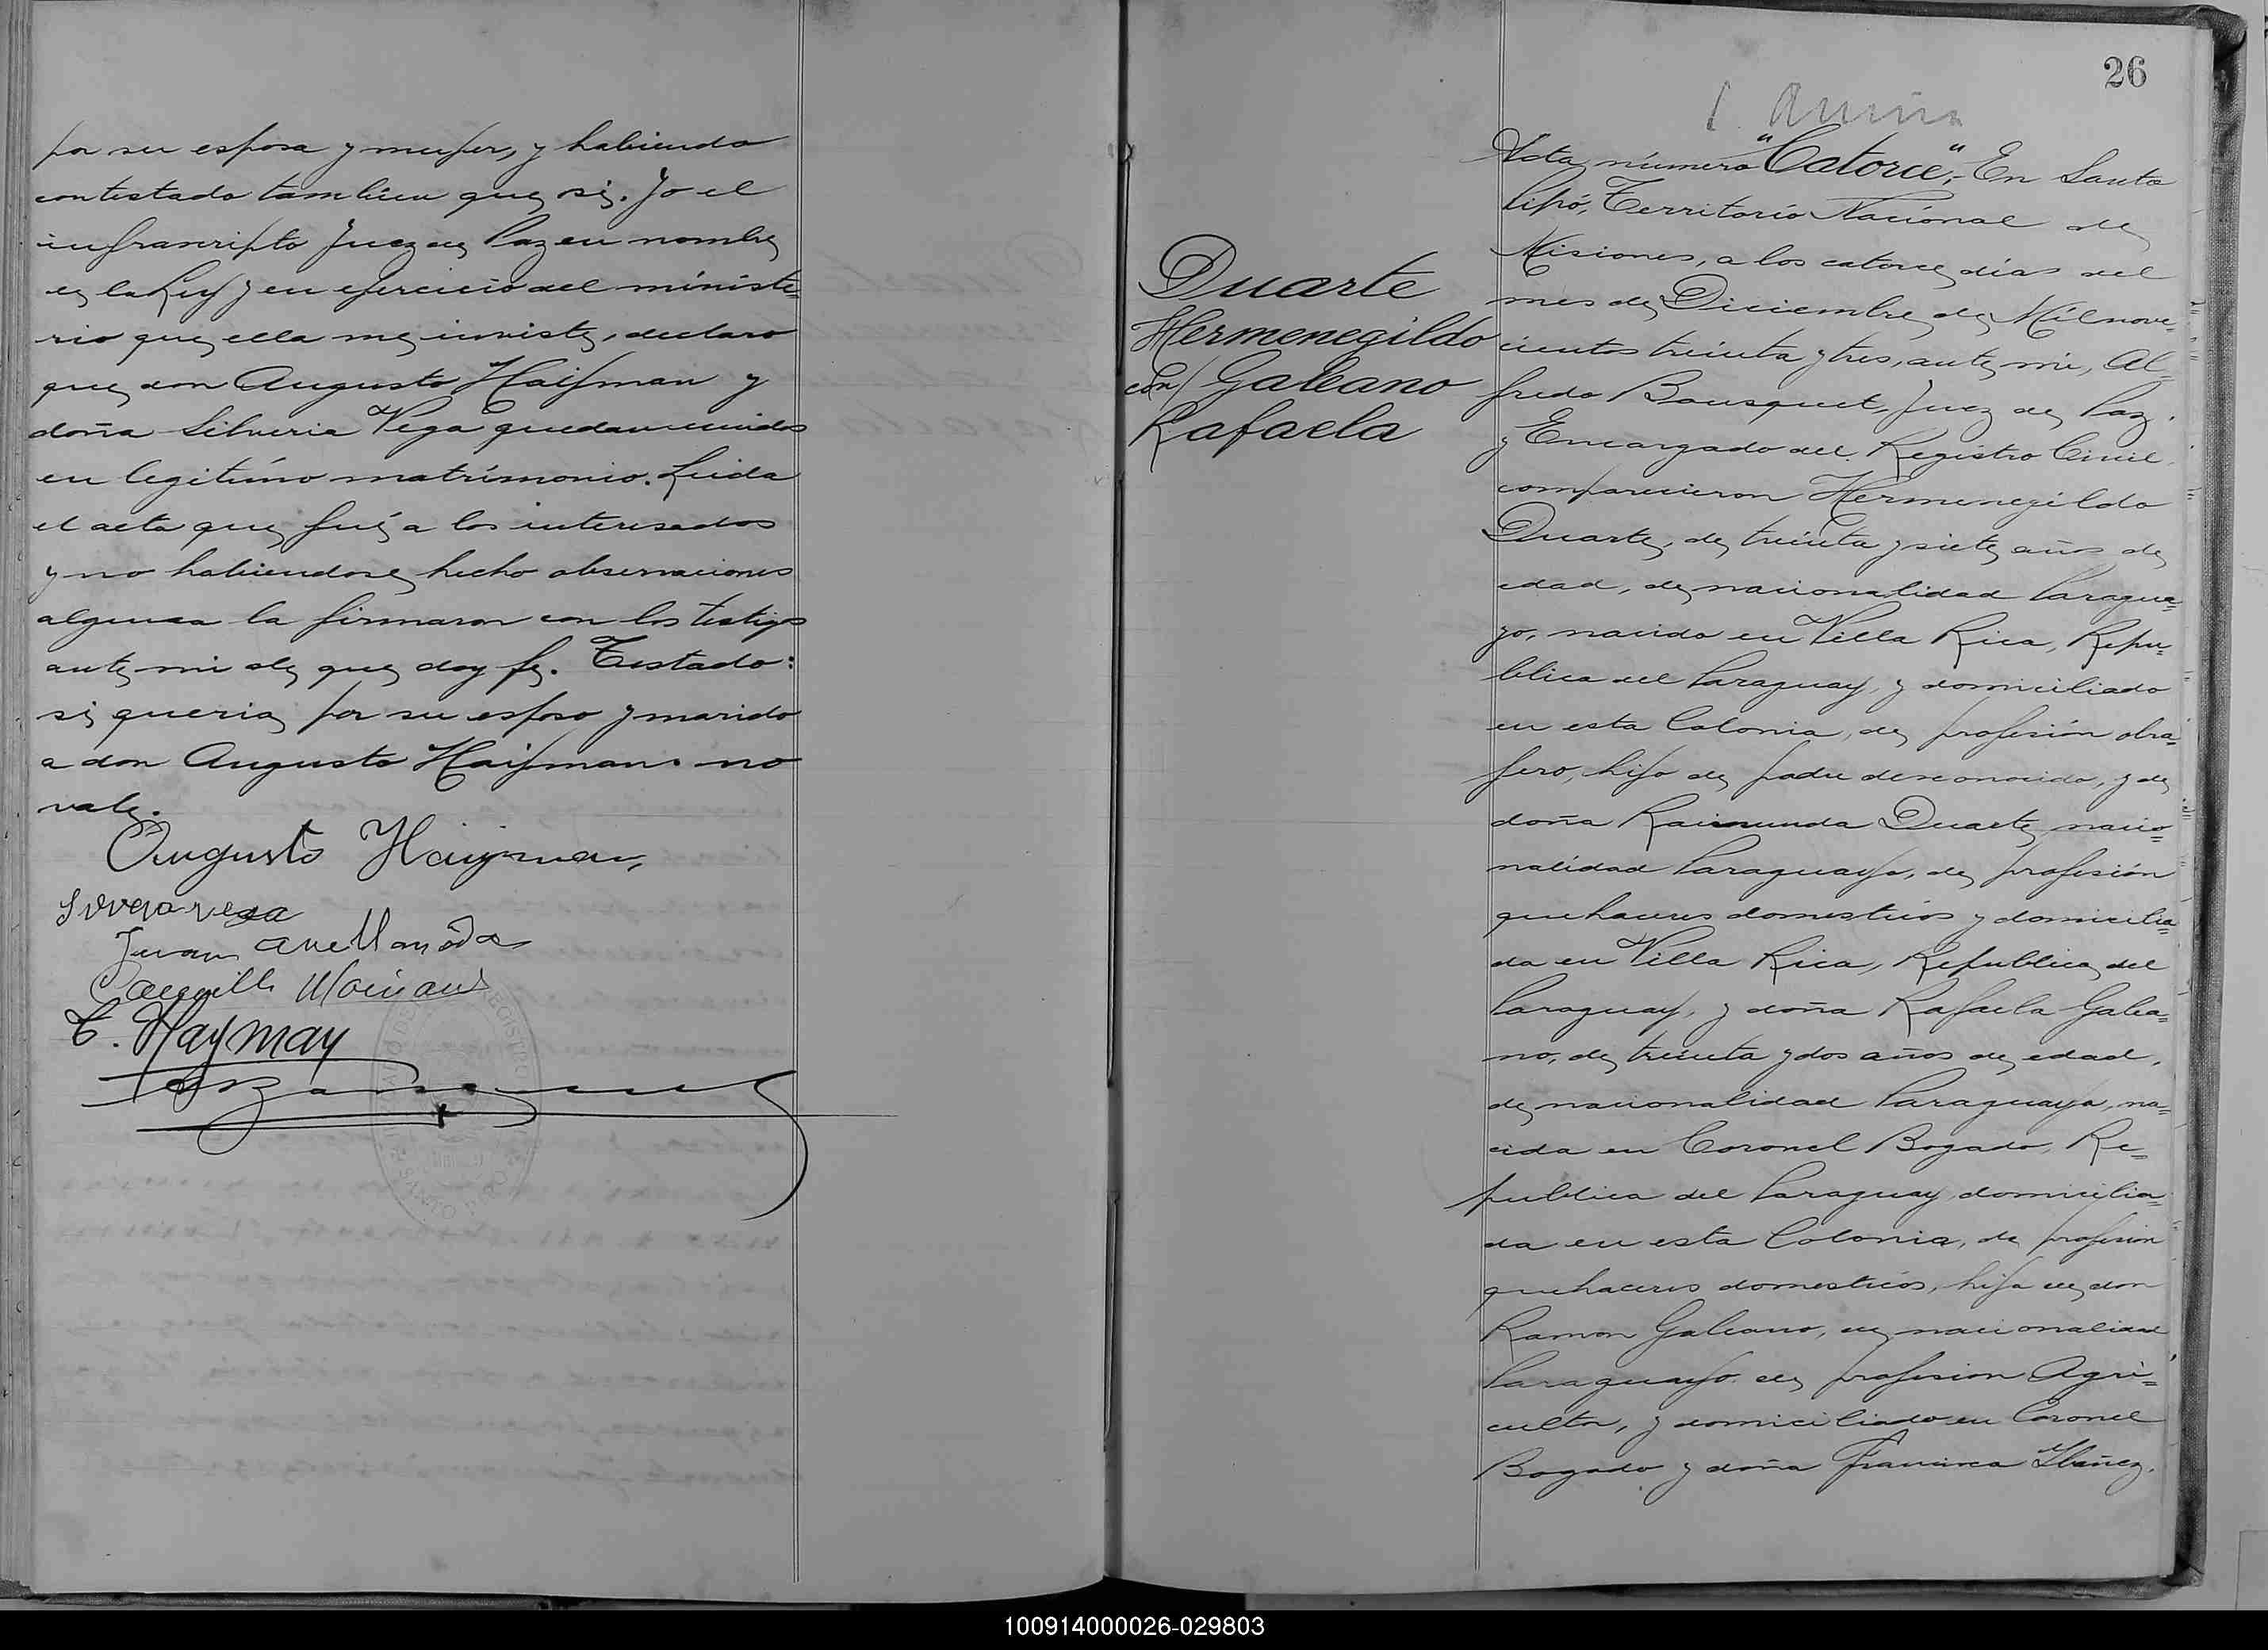 por su esposa y mujer, y habiendo
contestado tambien que si. Yo el
infrascripto Juez de Paz en nombre
de la Ley y en ejercicio del ministe=
rio que ella me inviste, declaro
que don Augusto Haijman y
doña Silveria Vega quedan unidos
en legitimo matrimonio. Leida
el acta que fué a los interesados
y no habiendose hecho observaciones
alguna la firmaron con los testigos
ante mi de que doy fe. Testado:
si queria por su esposo y marido
a don Augusto Haijman. no
vale.
Augusto Haijman
vega
Juan avellaneda
C. Haymay
REGISTRO
SANTO PIPO
26
Duarte
Hermenegildo
con/ Galeano
Rafaela
Acta número "Catorce".- En Santo
Pipó, Territorio Nacional de
Misiones, a los catorce dias del
mes de Diciembre de Mil nove=
cientos treinta y tres, ante mi, Al=
fredo Bousquet, Juez de Paz
y Encargado del Registro Civil
comparecieron Hermenegildo
Duarte, de treinta y siete años de
edad, de nacionalidad Paragua=
yo, nacido en Villa Rica, Repu=
blica del Paraguay, y domiciliado
en esta Colonia, de profesión obra=
jero, hijo de padre desconocido, y de
doña Raimunda Duarte nacio=
nalidad Paraguaya, de profesión
quehaceres domesticos y domicilia=
da en Villa Rica, Republica del
Paraguay, y doña Rafaela Galea=
no, de treinta y dos años de edad,
de nacionalidad Paraguaya, na=
cida en Coronel Bogado, Re=
publica del Paraguay domicilia=
da en esta Colonia, de profesion
quehaceres domesticos, hija de don
Ramon Galeano, de nacionalidad
Paraguayo de profesion Agri=
cultor, y domiciliado en Coronel
Bogado y doña Francisca Ibañez.
100914000026-029803